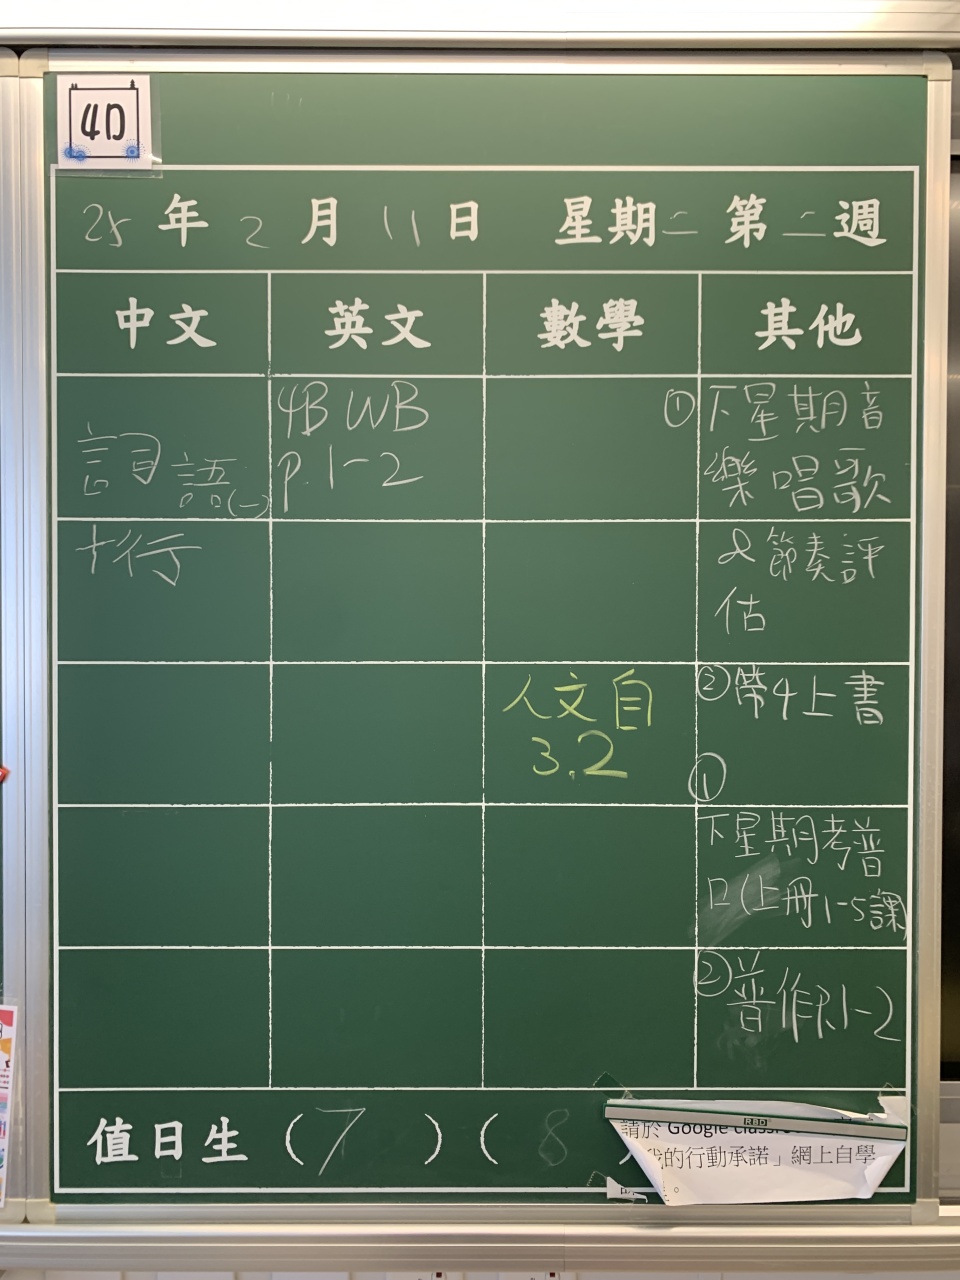 4D
25年2月11日 星期二 第二週
中文 英文 數學 其他
詞語(一)
4B WB
p.1-2
①下星期音
樂唱歌
行
&節奏評
估
人文自
3.2
②帶4上書
①
下星期考普
口(上冊1-5課)
②普作P.1-2
值日生(7)(8
請於 Google
我的行動承諾」網上自學
。